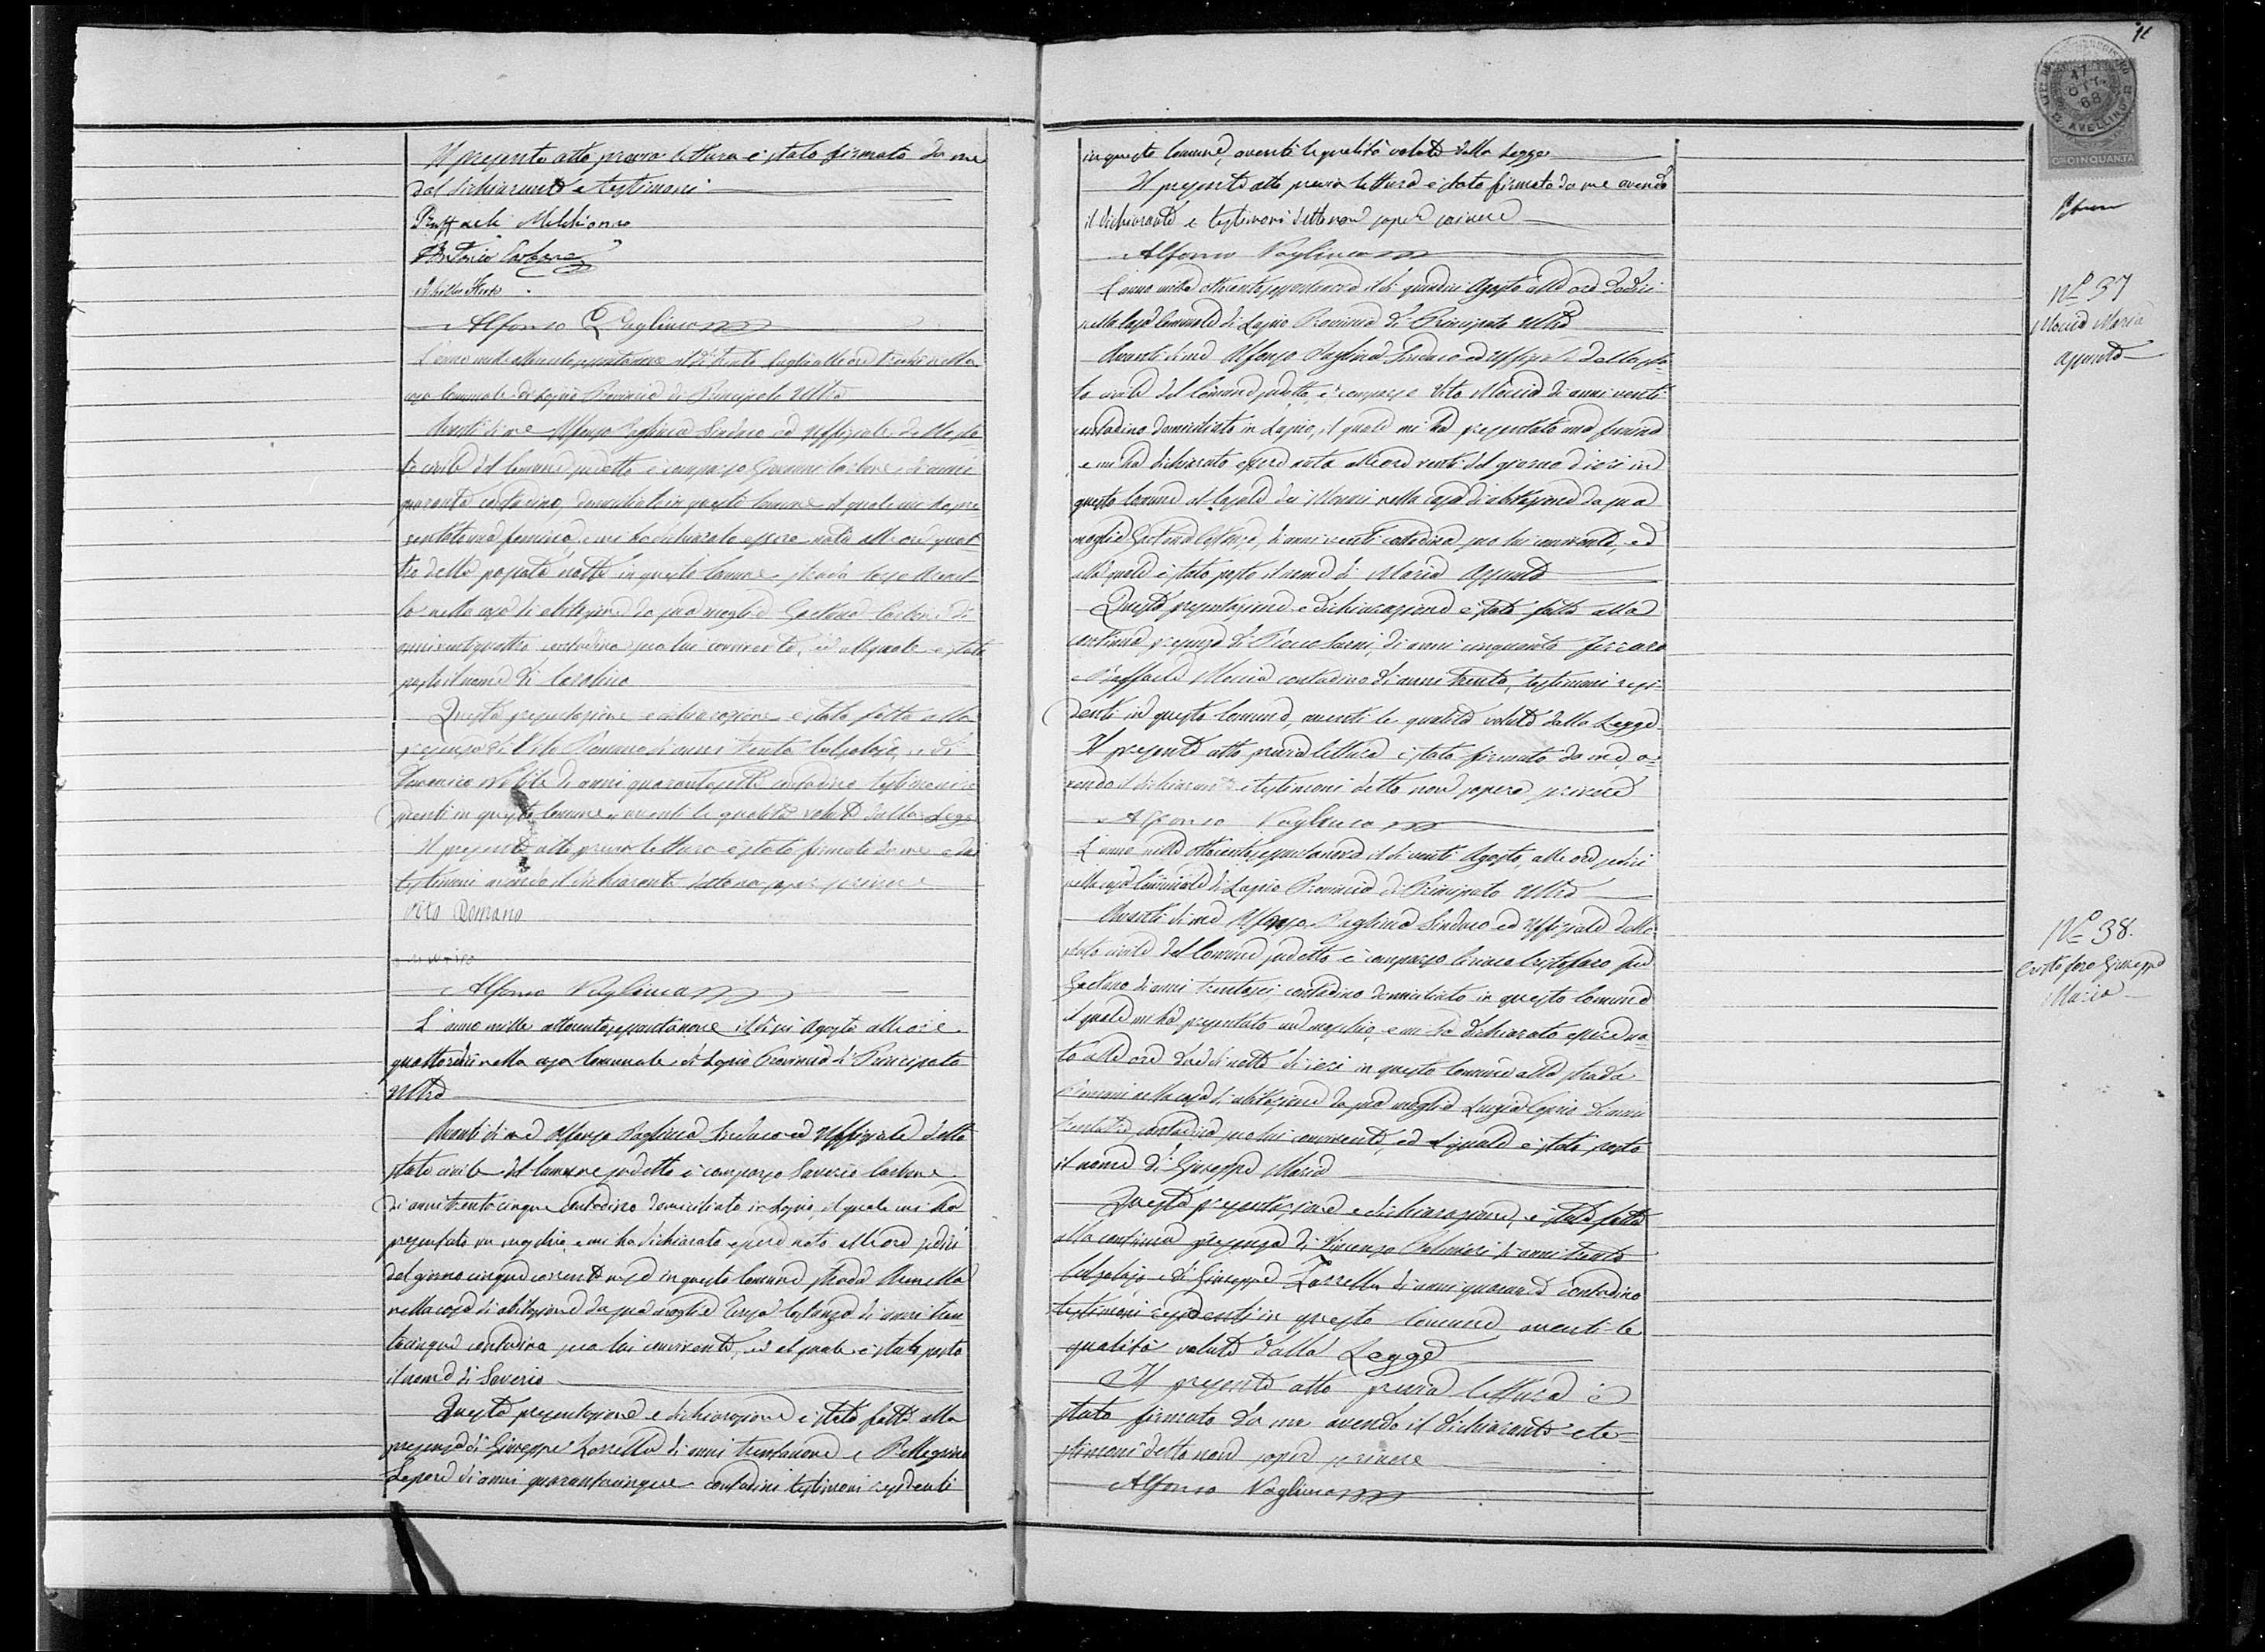 Il presente atto previa lettura è stato firmato da me
dal dichiarante e testimoni
Raffaele Melchionno
Antonio Carbone
Alfonso Pagliuca
L'anno mille ottocentosessantanove il dì trenta Luglio alle ore tredici nella
casa Comunale di Lapio Provincia di Principato Ultra
Avanti di me Alfonso Pagliuca Sindaco ed Uffiziale dello sta
to civile del Comune sudetto è comparso Giovanni Carbone di anni
quaranta contadino, domiciliato in questo Comune il quale mi ha pre
sentato una femina, e mi ha dichiarato essere nata alle ore quat
tro della passata notte in questo Comune strada
nella casa di abitazione da sua moglie Gaetana Carbone di
anni ventiquattro contadina seco lui convivente, ed alla quale è stato
posto il nome di Carolina
Questa presentazione e dichiarazione è stata fatta alla
presenza di Vito Romano di anni trenta Calzolajo, e di
Domenico di anni quarantasette contadino testimoni re
sidenti in questo Comune aventi le qualità volute dalla Legge
Il presente atto previa lettura è stato firmato da me e da
testimoni avendo il dichiarante detto non saper scrivere
Vito Romano
Alfonso Pagliuca
L'anno mille ottocentosessantanove il dì sei Agosto alle ore
quattordici nella casa Comunale di Lapio Provincia di Principato
Ultra
Avanti di me Alfonso Pagliuca Sindaco ed Uffiziale dello
stato civile del Comune sudetto è comparso Saverio Carbone
di anni trentacinque Contadino domiciliato in Lapio, il quale mi ha
presentato un maschio, e mi ha dichiarato essere nato alle ore sedici
del giorno cinque corrente mese in questo Comune strada
nella casa di abitazione da sua moglie Teresa Costanza di anni tren
tacinque contadina seco lui convivente, ed al quale è stato posto
il nome di Saverio
Questa presentazione e dichiarazione è stata fatta alla
presenza di Giuseppe Zarrella di anni trentanove e Pellegrino
Lepore di anni quarantacinque contadini testimoni residenti
in questo Comune, aventi le qualità volute dalla Legge
Il presente atto previa lettura è stato firmato da me avendo
il dichiarante e testimoni detto non saper scrivere
Alfonso Pagliuca
L'anno mille ottocentosessantanove il dì quindici Agosto alle ore dodici
nella casa Comunale di Lapio Provincia di Principato Ultra
Avanti di me Alfonso Pagliuca Sindaco ed Uffiziale dello sta
to civile del Comune sudetto, è comparso Vito Moccia di anni venti
contadino domiciliato in Lapio, il quale mi ha presentato una femina
e mi ha dichiarato essere nata alle ore venti del giorno d'ieri in
questo Comune al Casale dei nella casa di abitazione da sua
moglie Costanza, di anni venti contadina seco lui convivente, ed
alla quale è stato posto il nome di Maria Assunta
Questa presentazione e dichiarazione è stata fatta alla
continua presenza di Rocco di anni cinquanta ferraro
e Raffaele Moccia contadino di anni trenta, testimoni resi
denti in questo Comune, aventi le qualità volute dalla Legge
Il presente atto previa lettura è stato firmato da me, a=
vendo il dichiarante e testimoni detto non sapere scrivere
Alfonso Pagliuca
L'anno mille ottocentosessantanove il dì venti Agosto, alle ore sedici
nella casa Comunale di Lapio Provincia di Principato Ultra
Avanti di me Alfonso Pagliuca Sindaco ed Uffiziale dello
stato civile del Comune sudetto è comparso Ciriaco Cristofaro fu
Gaetano di anni trentasei contadino domiciliato in questo Comune
il quale mi ha presentato un maschio, e mi ha dichiarato essere na=
to alle ore due di notte di ieri in questo Comune alla strada
nella casa di abitazione da sua moglie Luigia di anni
trentatre contadina seco lui convivente, ed al quale è stato posto
il nome di Giuseppe Maria
Questa presentazione e dichiarazione, è stata fatta
alla continua presenza di Vincenzo di anni trenta
Calzolajo e di Giuseppe Zarrella di anni quaranta Contadino
testimoni residenti in questo Comune aventi le
qualità volute dalla Legge
Il presente atto previa lettura è
stato firmato da me avendo il dichiarante e te=
stimoni detto non saper scrivere
Alfonso Pagliuca
17
OTT.
68
AVELLINO
CMI CINQUANTA
No 37
Moccia Maria
Assunta
No 38.
Cristofaro Giuseppe
Maria